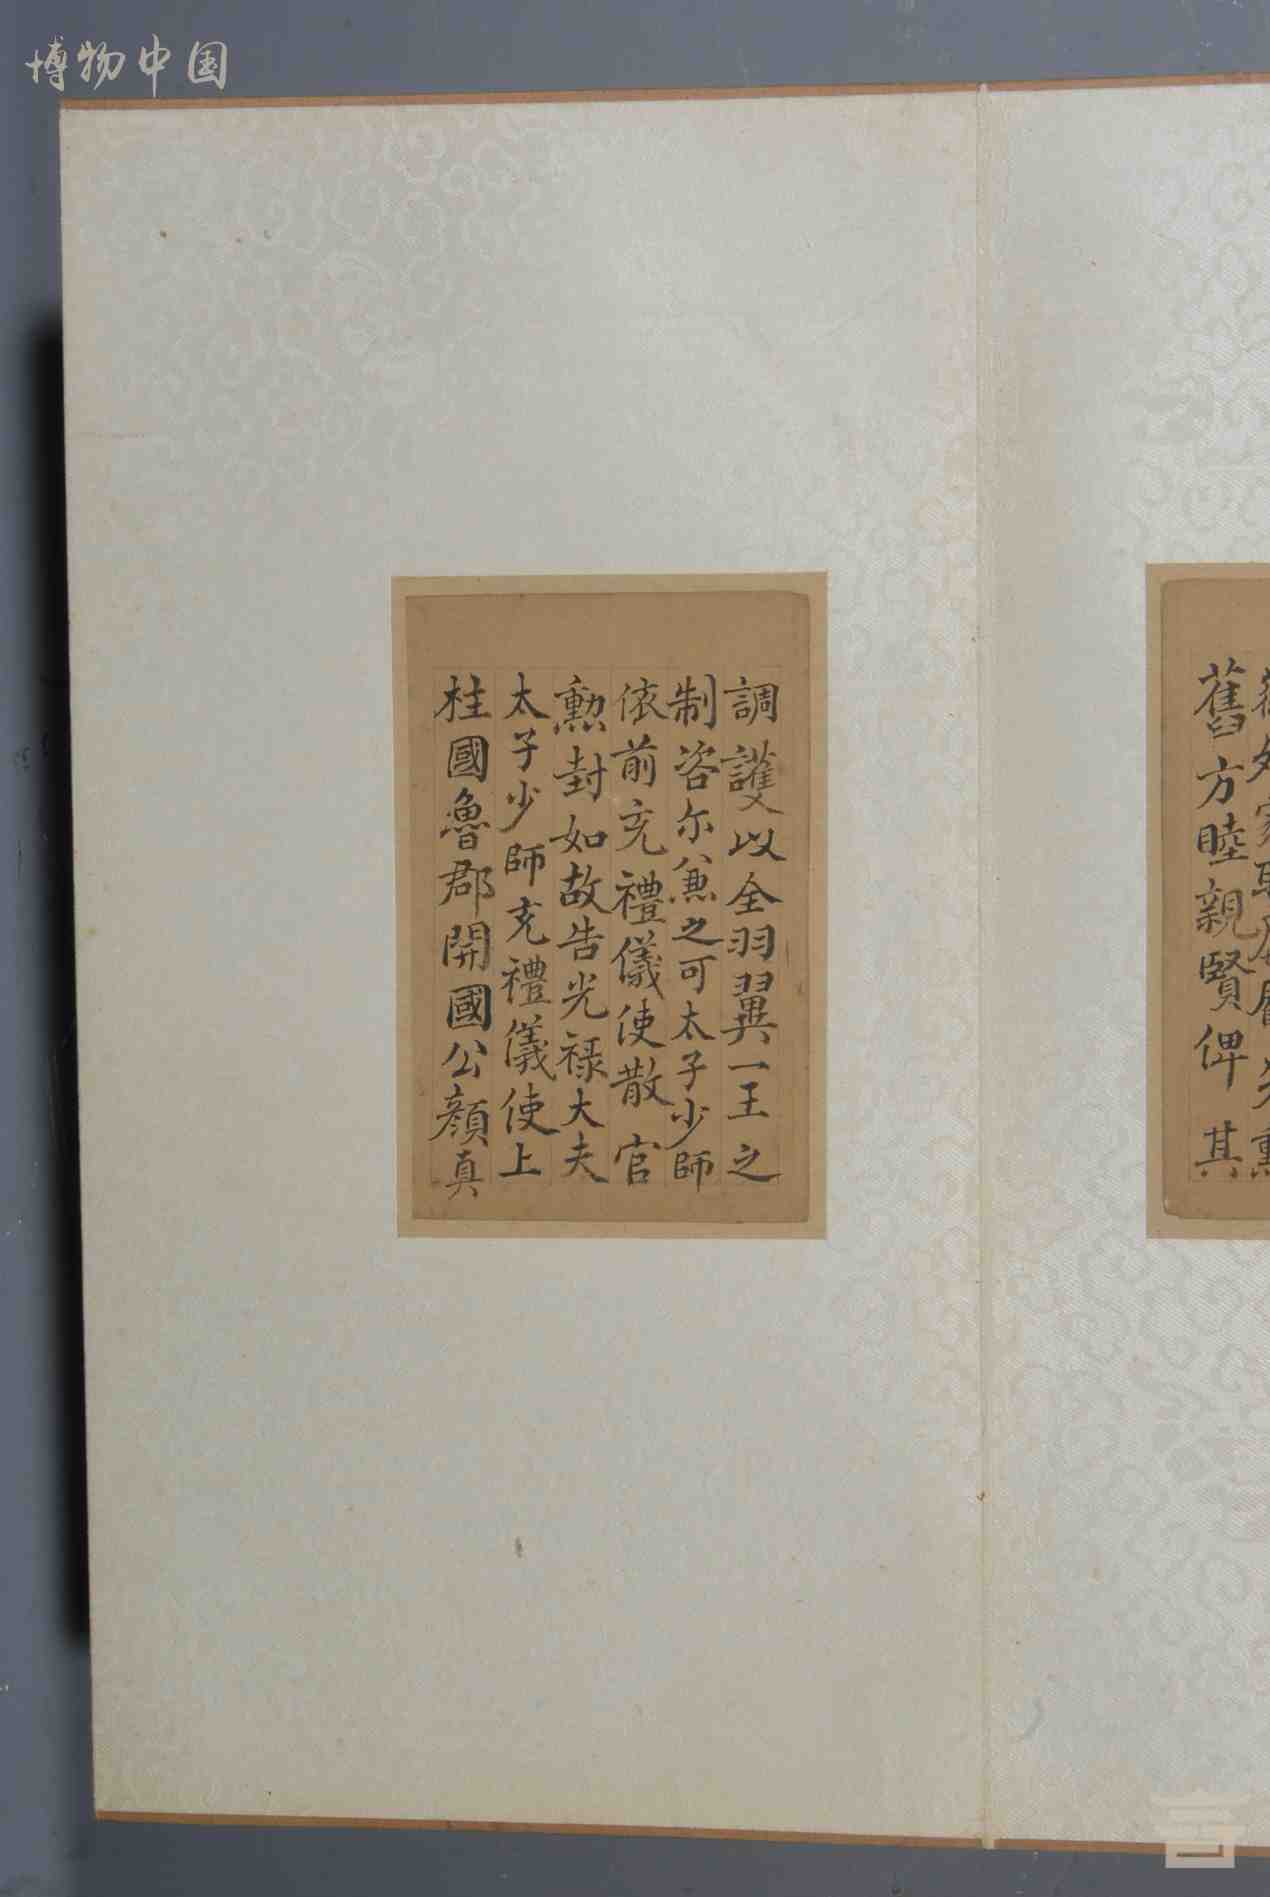 博物中国
舊方睦親賢俾其
調護以全羽翼一王之
制咨尔兼之可太子少師
依前充禮儀使散官
勲封如故告光禄大夫
太子少師充禮儀使上
柱國魯郡開國公顔真